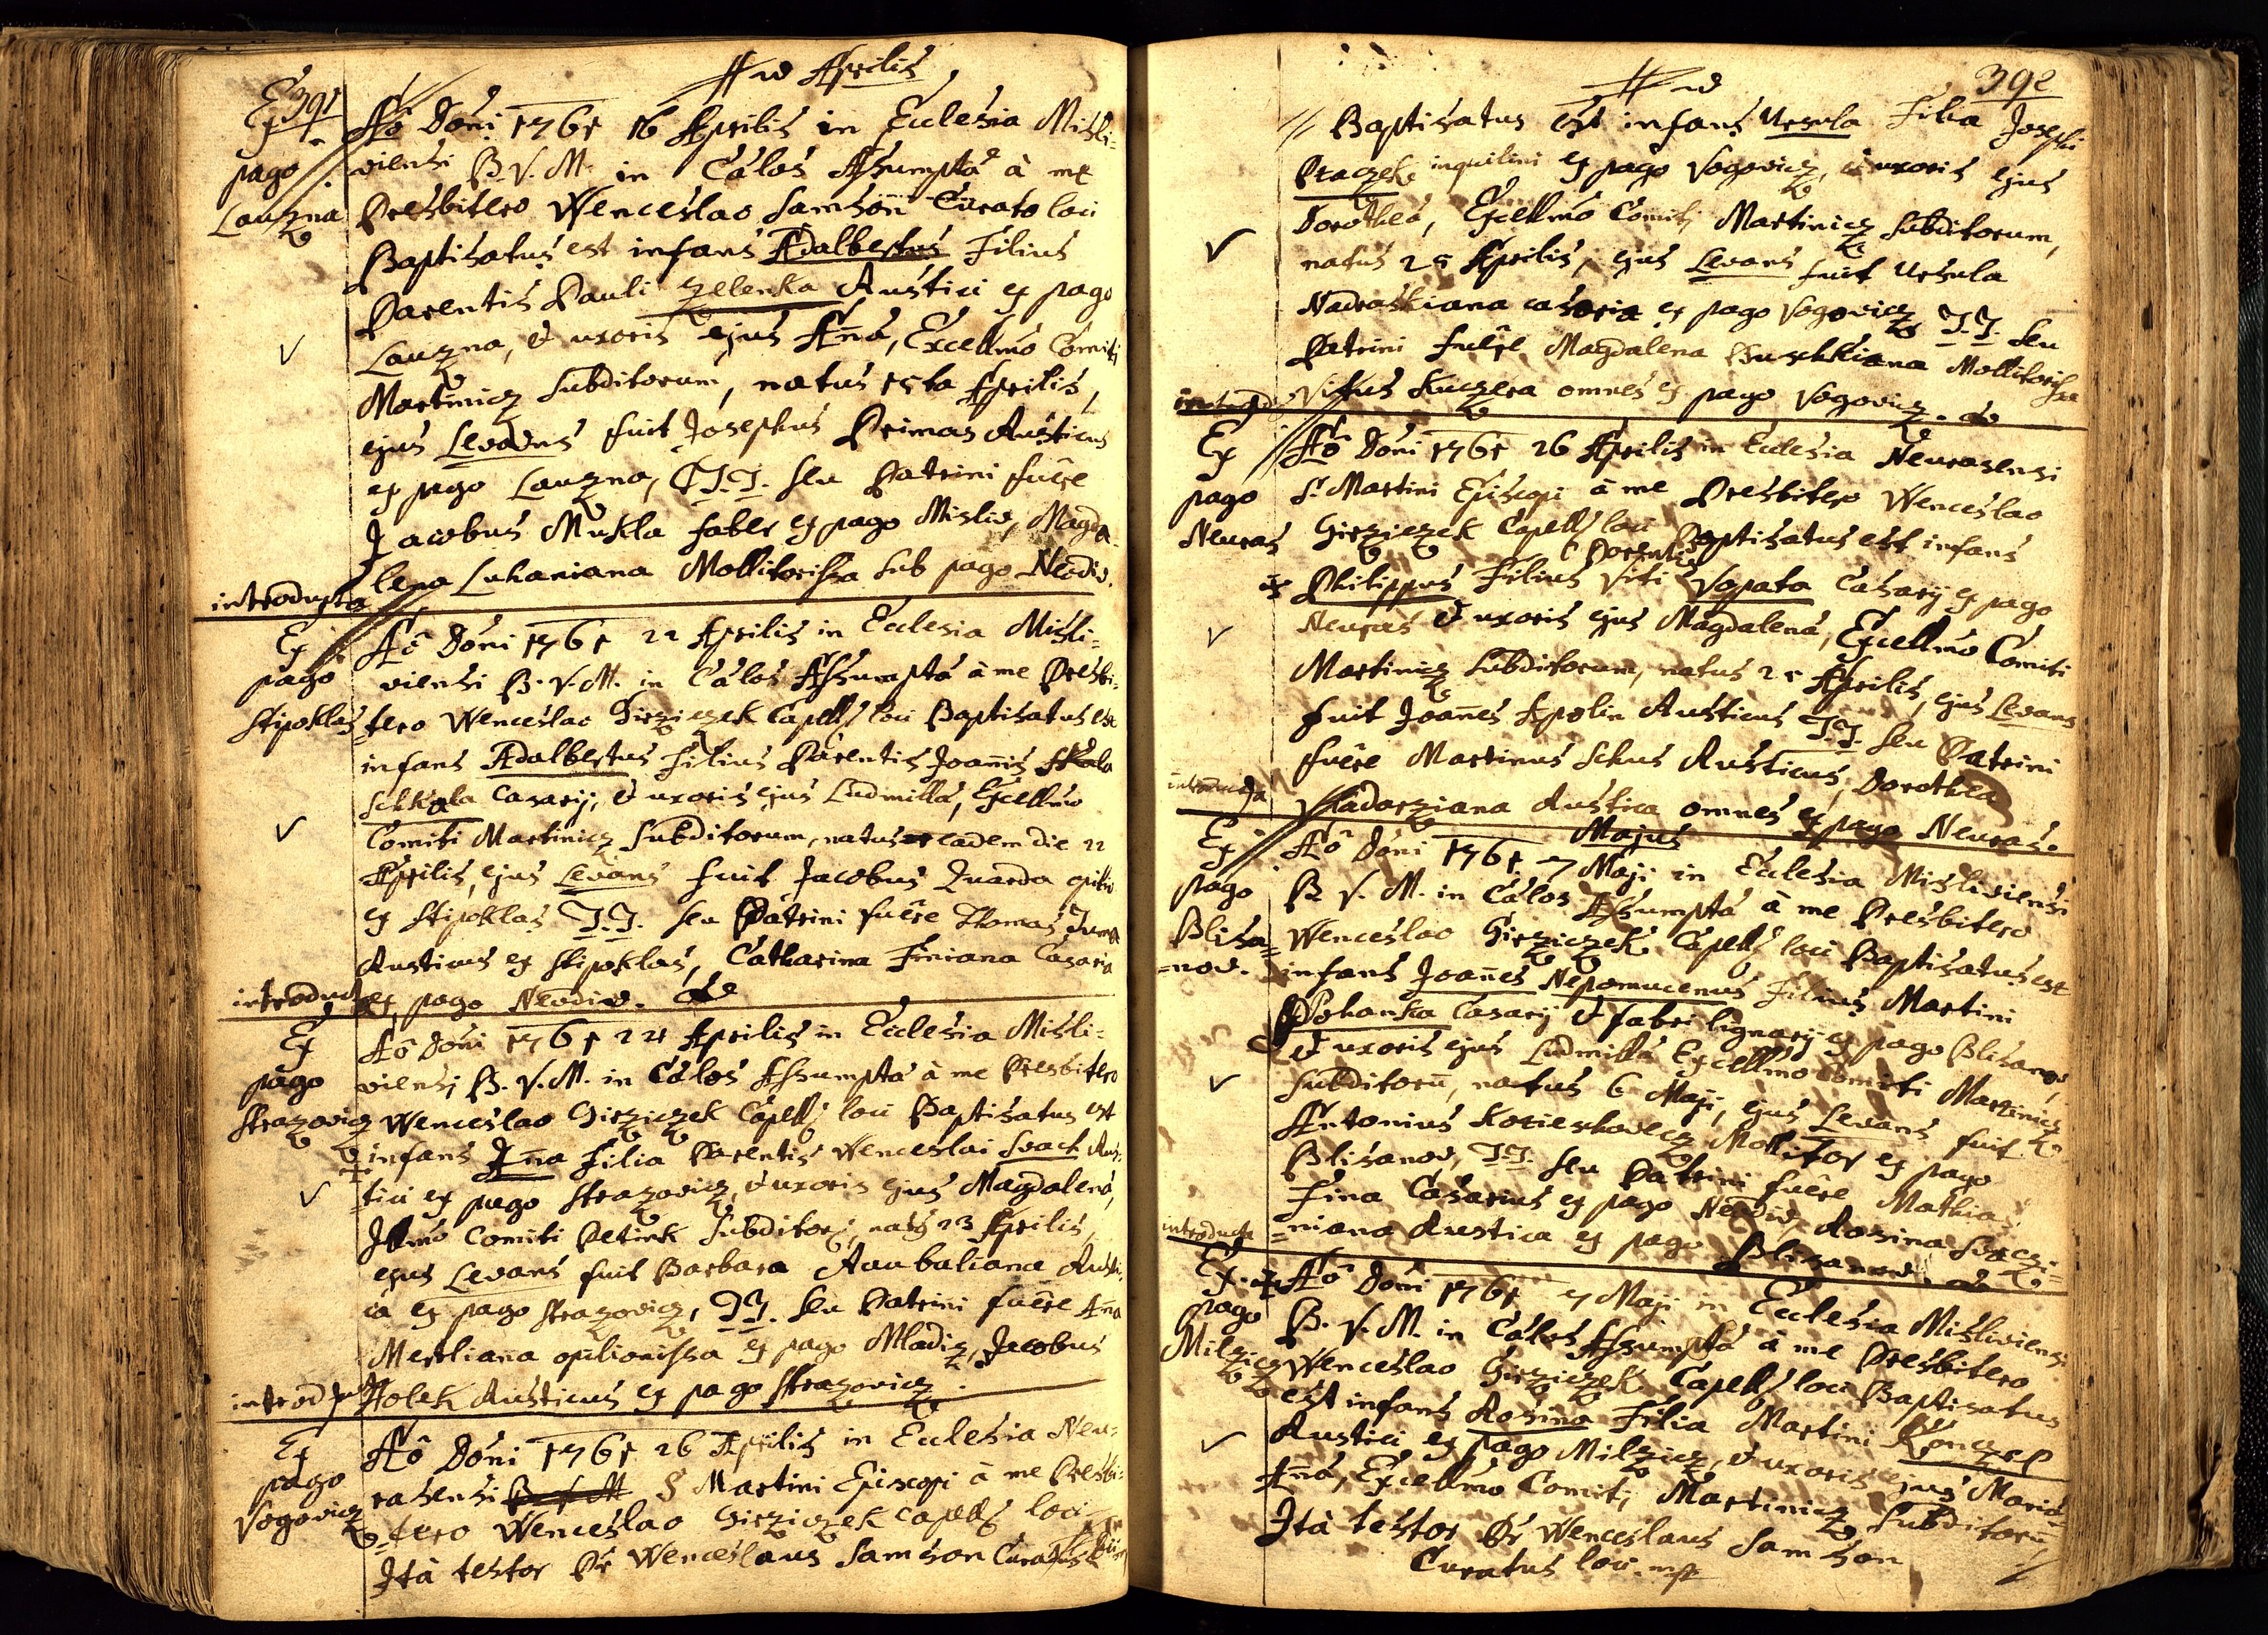 Aprilis
391
Ex
pago
Lauzna
Aô Doni 1761 16 Aprilis in Ecclesia Misli-
viensi B. V. M. in Cælos Assumptæ à me
Presbitero Wenceslao Samson Curato loci
Baptisatus est infans Adalbertus Filius
Parentis Pauli Zelenka Rustici ex pago
Lauzna, & uxoris ejus Añæ, Excellmo Comiti
Martinicz subditorum, natus 15ta Aprilis,
ejus Levans fuit Josephus Primas Rusticus
ex pago Lauzna, T.T. seu Patrini fuêre
Jacobus Mukla faber ex pago Misliv, Magda-
lena Luhaniana Mollitorissa sub pago Neodiv.
introducta
Ex
pago
Stipoklas
Aô Doni 1761 22 Aprilis in Ecclesia Misli-
viensi B. V. M. in Cælos Assumptæ à me Presbi-
tero Wenceslao Girziczek Capell. loci Baptisatus est
infans Adalbertus Filius Parentis Joañis
Schkala Casarij, & uxoris ejus Ludmillæ, Excellmo
Comiti Martinicz Subditorum, natus eadem die 22
Aprilis, ejus Levans fuit Jacobus Kuarda opilio
ex Stipoklas T.T. seu Patrini fuêre Thomas Tuma
Rusticus ex Stipoklas, Catharina Finiana Casaria
introducta ex pago Neodiv.
Ex
pago
Strazovicz
Aô Doni 1761 24 Aprilis in Ecclesia Misli-
viensi B. V. M. in Cælos Assumptæ à me Presbitero
Wenceslao Girziczek Capell. loci Baptisatus est
infans Aña Filia Parentis Wenceslai Svach Rus-
tici ex pago Strazovicz, & uxoris ejus Magdalenæ,
Illmo Comiti Petink Subditor, nats 23 Aprilis,
ejus Levans fuit Barbara Raubaliana Rusti-
ca ex pago Strazovicz, T.T. seu Patrini fuêre Aña
Mertliana opilionissa ex pago Mladiz, Jacobus
introducta Holek Rusticus ex pago Strazovicz.
Ex
pago
Vogovicz
Aô Doni 1761 26 Aprilis in Ecclesia Neu-
rasensi B. V. M S Martini Episcopi à me Presbi-
tero Wenceslao Girziczek Capell. loci
Ità testor Pr Wenceslaus Samson Curatus loci
392
Baptisatus est infans Ursula Filia Josephi
Ptaczek inquilini ex pago Vogovicz, & uxoris ejus
Dorotheæ, Excellmo Comiti Martinicz Subditorum,
natus 25 Aprilis, ejus Levans fuit Ursula
Nadraskiana casaria ex pago Vogovicz T.T. seu
Patrini fuêre Magdalena Buschkiana Mollitorissa
Vittus Kuczera omnes ex pago Vogovicz.
Ex
pago
Neuras
Aô Doni 1761 26 Aprilis in Ecclesia Neurasensi
S. Martini Episcopi à me Presbitero Wenceslao
Girziczek Capell. loci Baptisatus est infans
Philippus Filius Parentis Viti Vopata Casarij ex pago
Neuras & uxoris ejus Magdalenæ, Excellmo Comiti
Martinicz Subditorum, natus 25 Aprilis, ejus Levans
fuit Joañes Apolin Rusticus T.T. seu Patrini
fuêre Martinus Schus Rusticus, Dorothea
introducta Kadarziana Rustica omnes ex pago Neuras.
Majus
Ex
pago
Blisa-
nov.
Aô Doni 1761 7 Maji in Ecclesia Misliviensi
B V. M. in Cælos Assumptæ à me Presbitero
Wenceslao Girziczek Capell. loci Baptisatus est
infans Joañes Nepomucenus Filius Martini
Pohanka Casarij & fabri lignarij ex pago Blisanov,
& uxoris ejus Ludmillæ Excellmo Comiti Martinicz
Subditorũ, natus 6 Maji, ejus Levans fuit
Antonius Korieskovecz Mollitor ex pago
Blisanov, T.T. seu Patrini fuêre Mathias
Fina Casarius ex pago Neodiv, Rosina Svaczi-
introducta niana Rustica ex pago Blisanov.
Ex
pago
Milzicz
Aô Doni 1761 7 Maji in Ecclesia Misliviensi
B. V. M. in Cælos Assumptæ à me Presbitero
Wenceslao Girziczek Capell. loci Baptisatus
est infans Rosina Filia Martini Konczel
Rustici ex pago Milzicz, & uxoris ejus Mariæ
Añæ, Excellmo Comiti Martinicz Subditorũ
Ità testor Pr Wenceslaus Samson
Curatus loci. mp